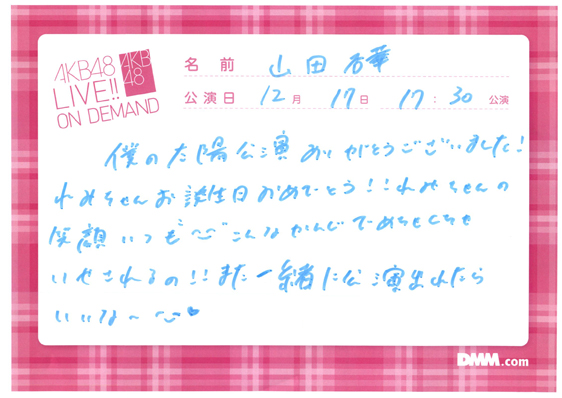 AKB48
LIVE!!
ON DEMAND
AKB
48
名前 山田杏華
公演日 12月 17日 17:30 公演
僕の太陽公演ありがとうございました!
れみちゃんお誕生日おめでとう!!れみちゃんの
笑顔いつも こんなかんじでめちゃくちゃ
いやされるの!!また一緒に公演出れたら
いいな〜
DMM.com